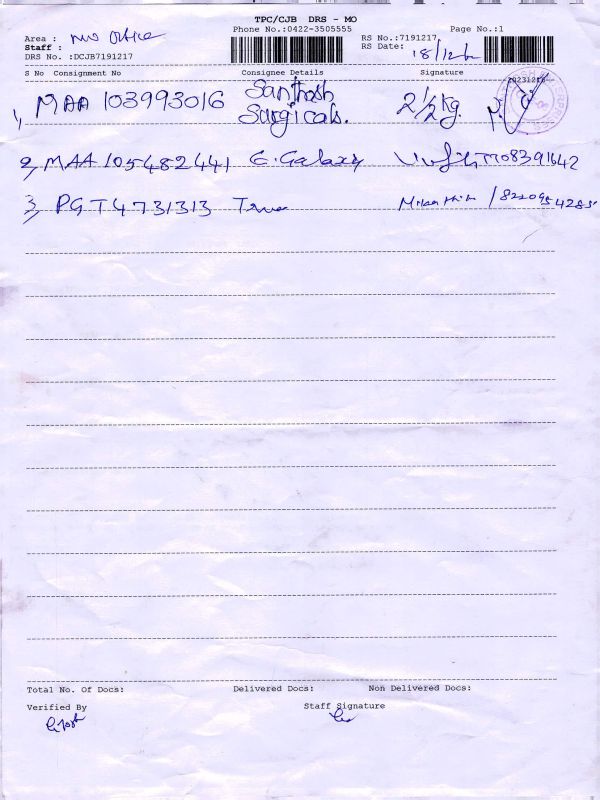 TPC/CJB DRS - MO
Phone No.:0422-3505555 Page No.:1
Area : Office RS No.:7191217
Staff : RS Date: 18/12/
DRS No. :DCJB7191217
S No Consignment No Consignee Details Signature
20231218
1, MAA 103993016 Santhosh Surgicals. 2 1/2 kg.
2, MAA 105482441 G. Galaxy 7708391642
3, PGT4731313 True
Total No. Of Docs: Delivered Docs: Non Delivered Docs:
Verified By Staff Signature